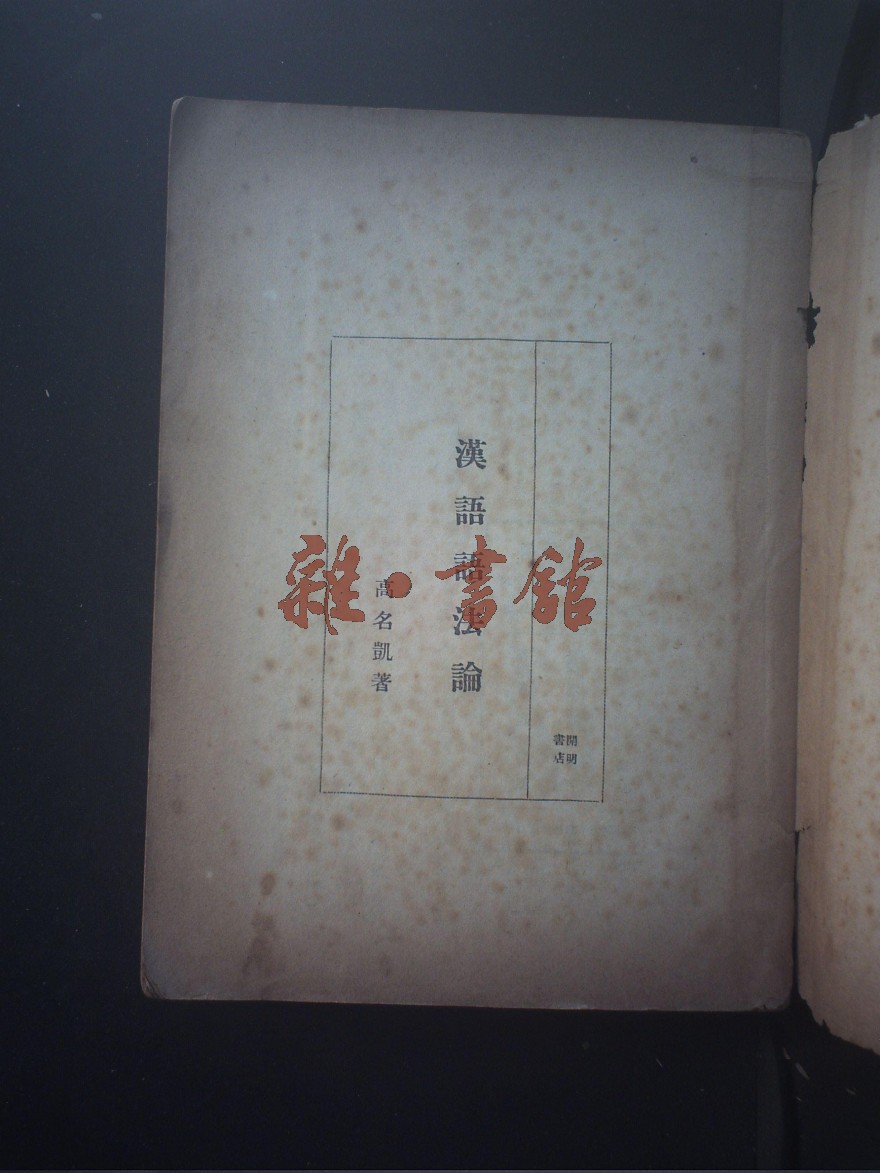 漢語語法論
高名凱著
開明
書店
雜·書館